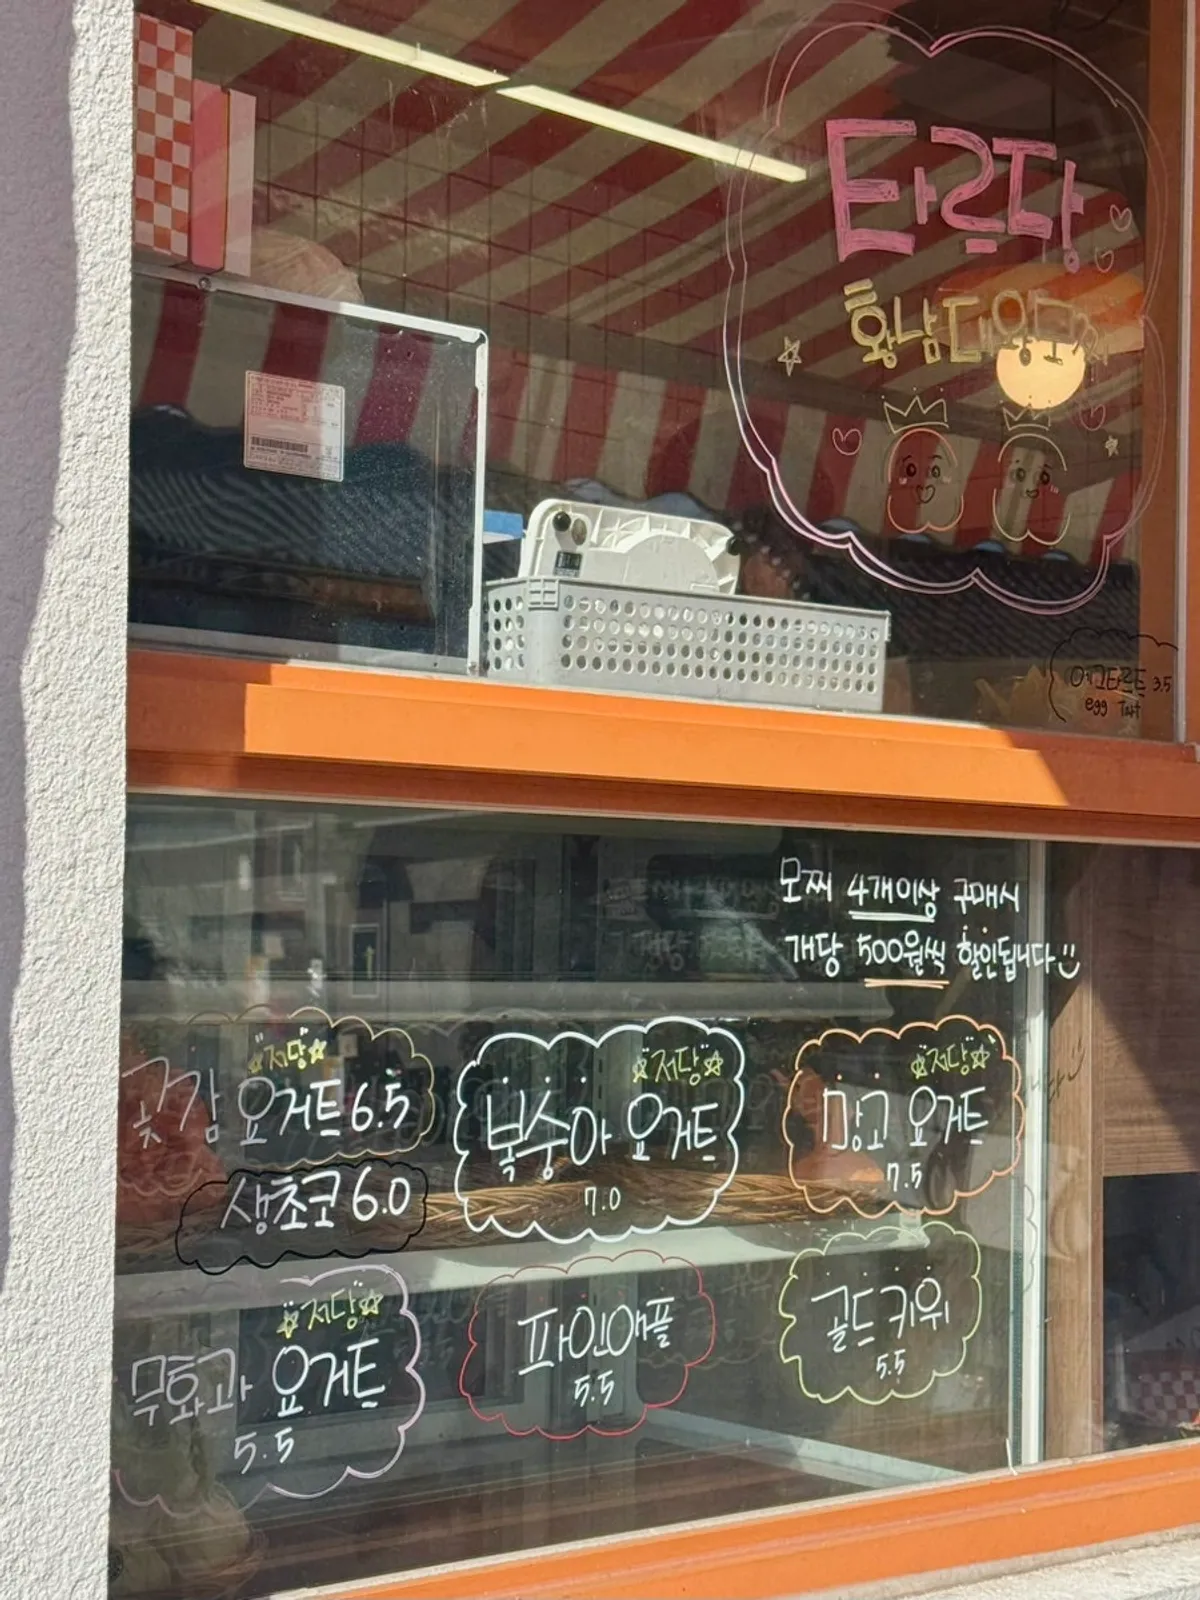 타르당
황남대왕모찌
에그타르트 3.5
egg Tart
모찌 4개이상 구매시
개당 500원씩 할인됩니다
저당
곶감 요거트 6.5
생초코 6.0
저당
복숭아 요거트
7.0
저당
망고 요거트
7.5
저당
무화과 요거트
5.5
파인애플
5.5
골드키위
5.5